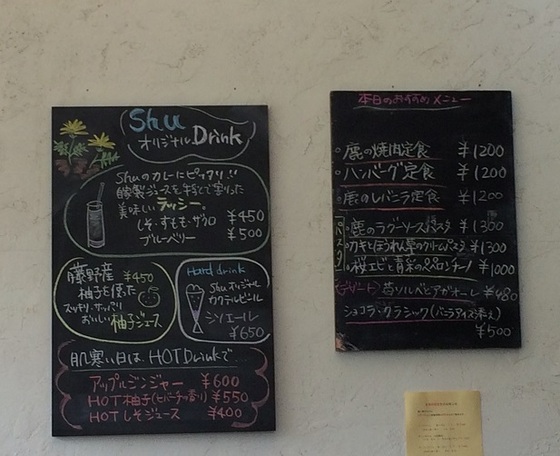 Shu
オリジナル Drink
Shuのカレーにピッタリ!!
自家製ジュースを牛乳で割った
美味しいラッシー。
しそ・すもも・ザクロ ¥450
ブルーベリー ¥500
藤野産 ¥450
柚子を使った
スッキリ・サッパリ
おいしい 柚子ジュース
Hard drink
Shuオリジナル
カクテルビール
シソエール
¥650
肌寒い日は、HOT Drinkで…
アップルジンジャー ¥600
HOT柚子(ビバーチェ香り) ¥550
HOTしそジュース ¥400
本日のおすすめメニュー
鹿の焼肉定食 ¥1200
ハンバーグ定食 ¥1200
鹿のレバニラ定食 ¥1200
鹿のラグーソースパスタ ¥1300
カキとほうれん草のクリームパスタ ¥1300
桜エビと青菜のペペロンチーノ ¥1000
デザート 苺ソルベとアフォガード ¥480
ショコラ・クラシック(バニラアイス添え)
¥500